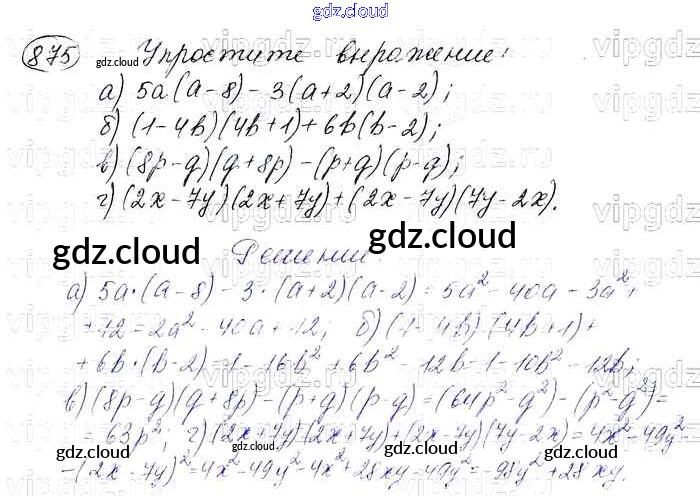 gdz.cloud
875 gdz.cloud Упростите выражение:
а) 5a(a-8)-3(a+2)(a-2);
б) (1-4b)(4b+1)+6b(b-2);
в) (8p-q)(q+8p)-(p+q)(p-q);
г) (2x-7y)(2x+7y)+(2x-7y)(7y-2x).
gdz.cloud gdz.cloud
Решение:
а) 5a·(a-8)-3·(a+2)(a-2)=5a²-40a-3a²+
+12=2a²-40a+12; б) (1-4b)·(4b+1)+
+6b·(b-2)=1-16b²+6b²-12b=1-10b²-12b;
в) (8p-q)(q+8p)-(p+q)(p-q)=(64p²-q²)-(p²-q²)=
=63p²; г) (2x+7y)(2x+7y)+(2x-7y)(7y-2x)=4x²-49y²-
-(2x-7y)²=4x²-49y²-4x²+28xy-49y²=-98y²+28xy.
gdz.cloud gdz.cloud
vipgdz